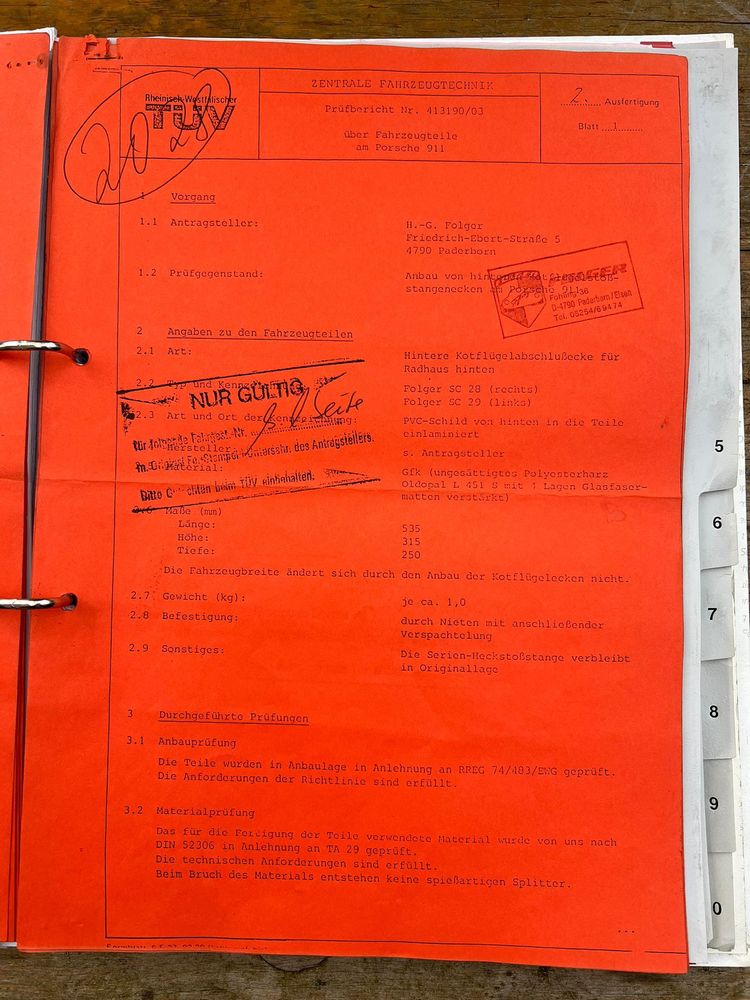 Rheinisch-Westfälischer
TÜV
20 28
ZENTRALE FAHRZEUGTECHNIK
Prüfbericht Nr. 413190/03
über Fahrzeugteile
am Porsche 911
2. Ausfertigung
Blatt 1
1 Vorgang
1.1 Antragsteller:
H.-G. Folger
Friedrich-Ebert-Straße 5
4790 Paderborn
1.2 Prüfgegenstand:
Anbau von hinteren Kotflügelstoß-
stangenecken am Porsche 911
FOLGER
36
D-4790 Paderborn/Elsen
Tel. 05254/69474
2 Angaben zu den Fahrzeugteilen
2.1 Art:
Hintere Kotflügelabschlußecke für
Radhaus hinten
2.2 Typ und Kennzeichnung:
Folger SC 28 (rechts)
Folger SC 29 (links)
NUR GÜLTIG
2.3 Art und Ort der Kennzeichnung:
PVC-Schild von hinten in die Teile
einlaminiert
Seite
für folgende Fahrgest.-Nr.
Hersteller:
s. Antragsteller
m. Original Fa.-Stempel Unterschr. des Antragstellers.
Material:
Gfk (ungesättigtes Polyesterharz
Oldopal L 451 S mit 4 Lagen Glasfaser-
matten verstärkt)
Bitte Gutachten beim TÜV einbehalten.
2.6 Maße (mm)
Länge: 535
Höhe: 315
Tiefe: 250
Die Fahrzeugbreite ändert sich durch den Anbau der Kotflügelecken nicht.
2.7 Gewicht (kg):
je ca. 1,0
2.8 Befestigung:
durch Nieten mit anschließender
Verspachtelung
2.9 Sonstiges:
Die Serien-Heckstoßstange verbleibt
in Originallage
3 Durchgeführte Prüfungen
3.1 Anbauprüfung
Die Teile wurden in Anbaulage in Anlehnung an RREG 74/483/EWG geprüft.
Die Anforderungen der Richtlinie sind erfüllt.
3.2 Materialprüfung
Das für die Fertigung der Teile verwendete Material wurde von uns nach
DIN 52306 in Anlehnung an TA 29 geprüft.
Die technischen Anforderungen sind erfüllt.
Beim Bruch des Materials entstehen keine spießartigen Splitter.
...
5
6
7
8
9
0